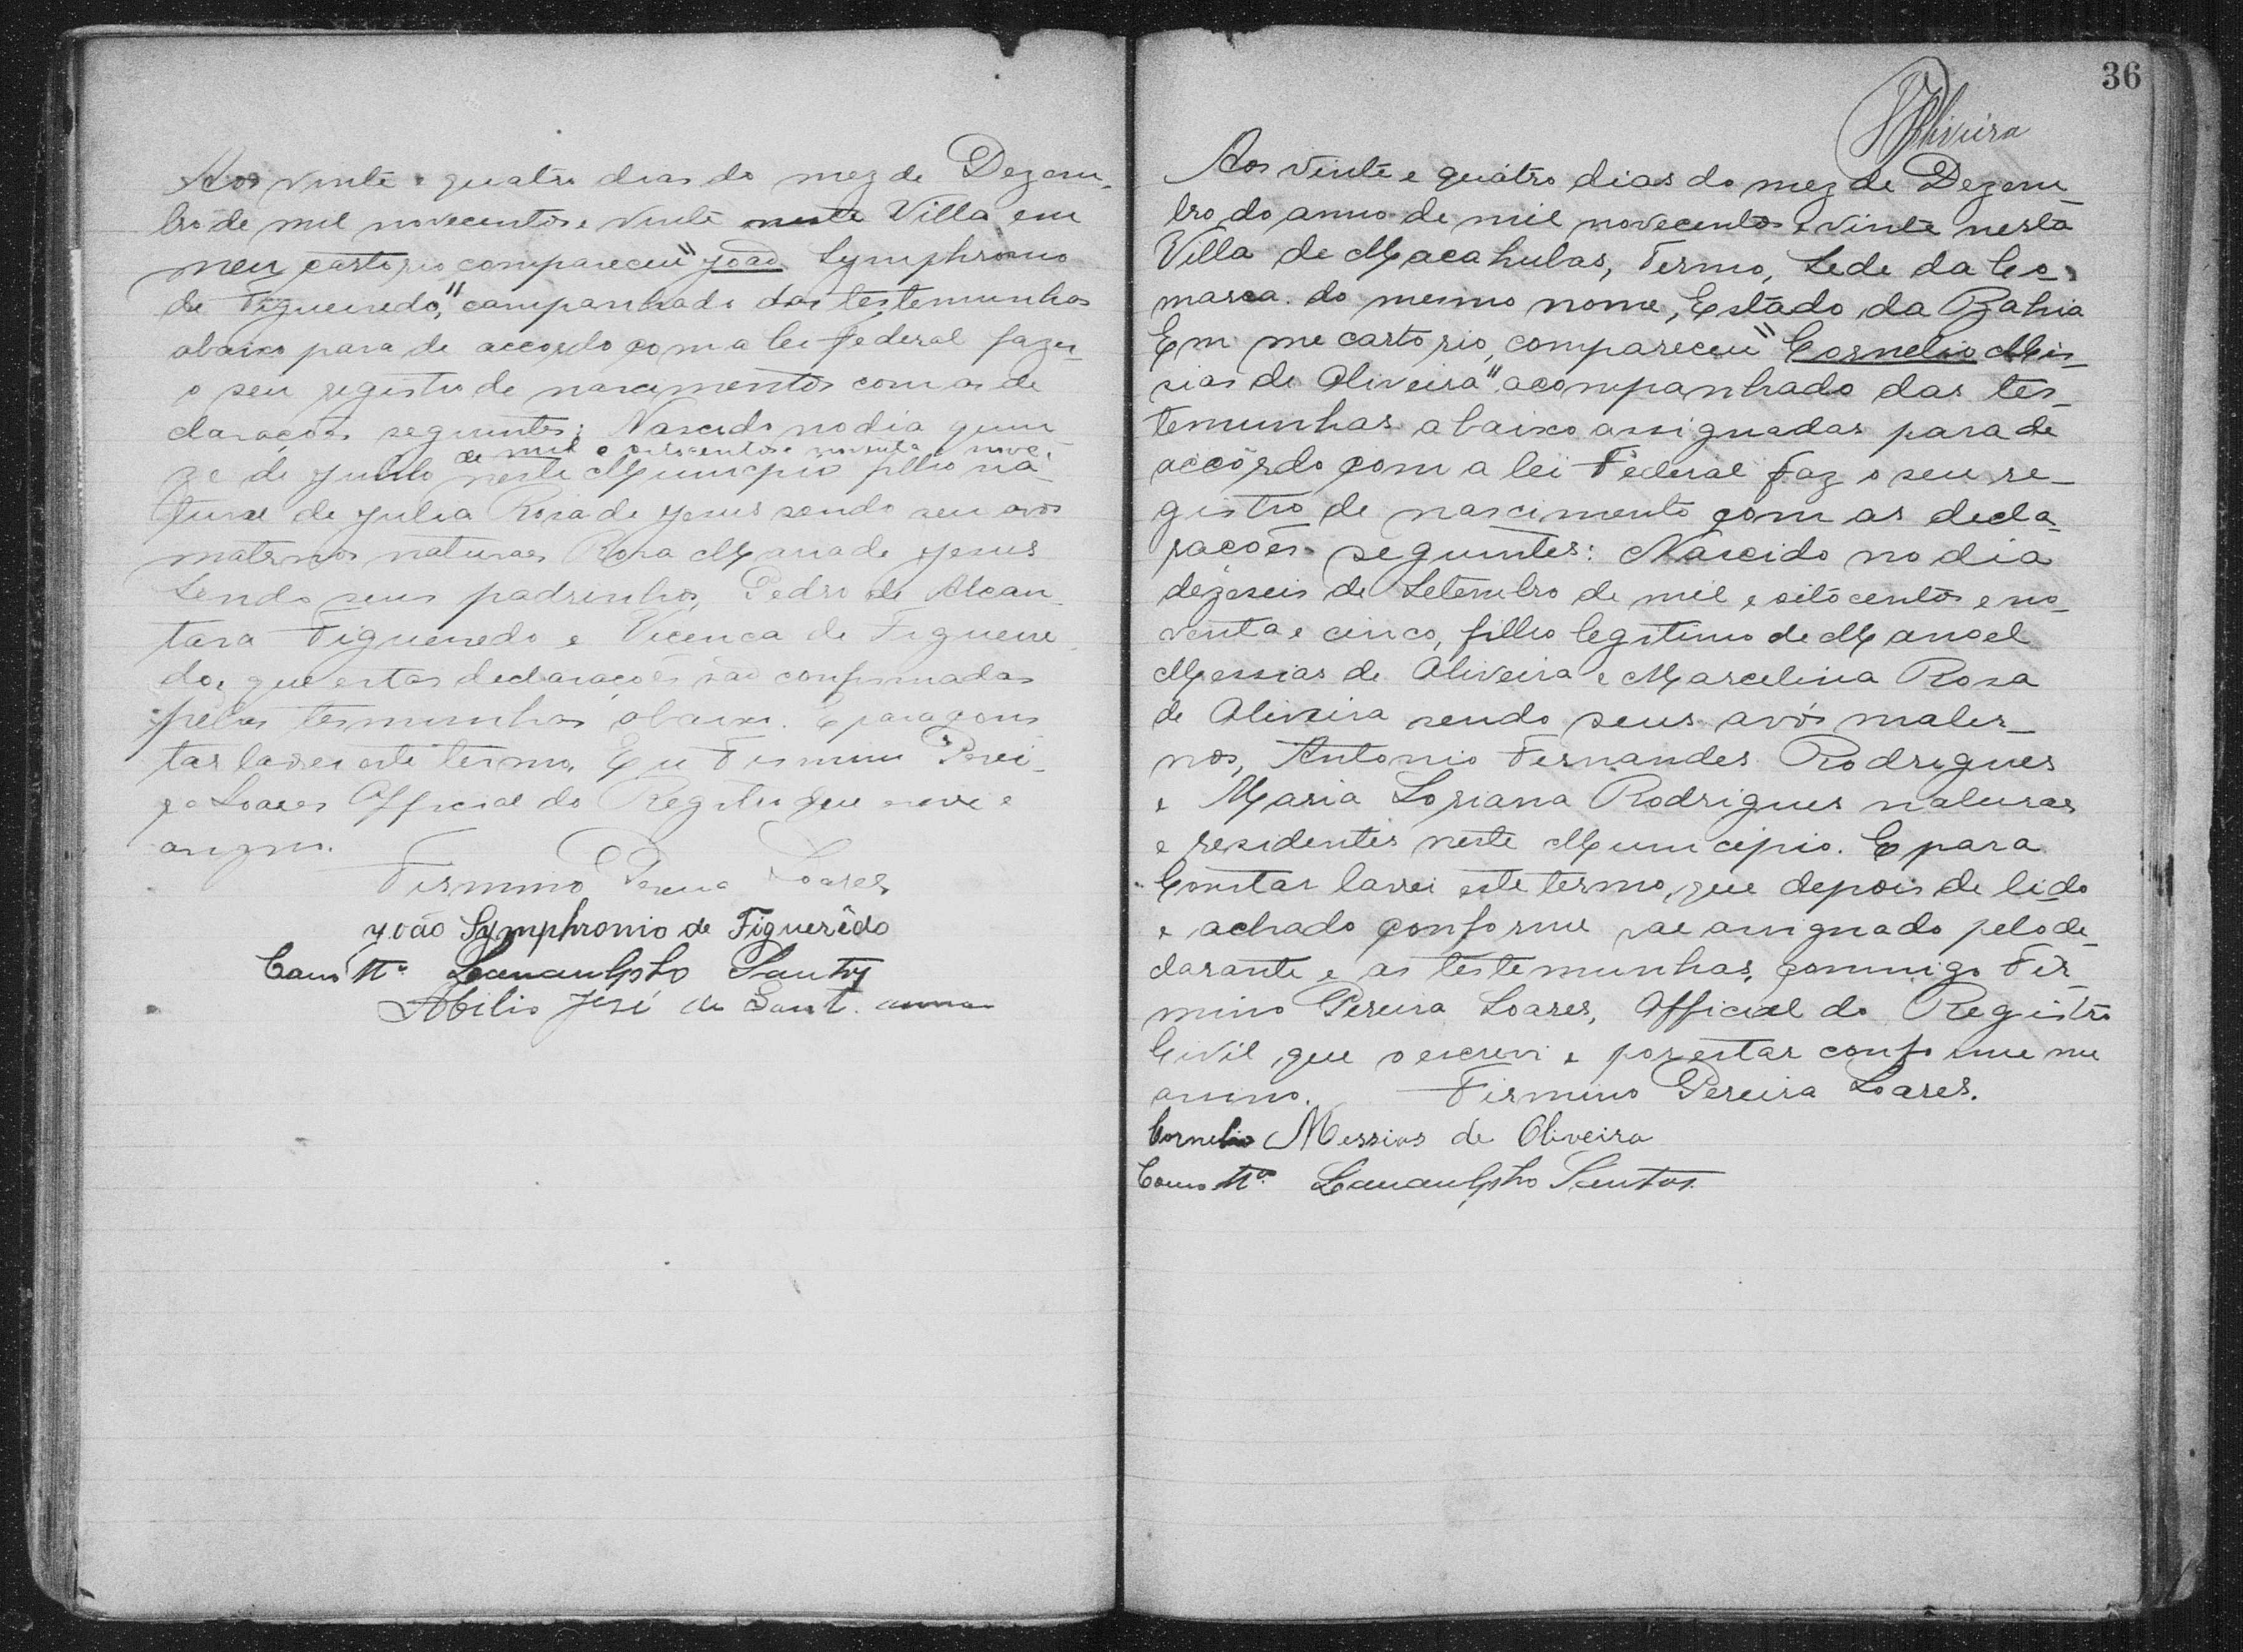 Aos vinte e quatro dias do mez de Dezem-
bro de mil novecentos e vinte nesta Villa em
meu cartorio compareceu "João Symphronio
de Figueiredo," campanhado das testemunhas
abaixo para de accordo com a lei Federal fazer
o seu registro de nascimentos com as de
clarações seguintes: Nascido no dia quin
de mil e oitocentos e noventa e nove,
ze de Junho neste Municipio filho na-
tural de Julia Rosa de Jesus sendo seu avós
maternos naturaes Rosa Maria de Jesus
Sendo seus padrinhos, Pedro de Alcan-
tara Figueiredo e Vicença de Figueire
do, que estas declarações são confirmadas
pelas termunhas abaixo. E para cons
tar lavrei este termo. Eu Firmino Perei-
ra Soares Official do Registro que escrevi e
assigno.
Firmino Pereira Soares
João Symphronio de Figuerêdo
Como tta. Landulpho Santos
Abilio José de Sant. anna
36
Oliveira
Aos vinte e quatro dias do mez de Dezem-
bro do anno de mil novecentos e vinte nesta
Villa de Macahubas, Termo, Sede da Co-
marca do mesmo nome, Estado da Bahia
Em me cartorio, compareceu "Cornelio Mis-
sias de Oliveira" acompanhado das tes-
temunhas abaixo assignadas para de
accôrdo com a lei Federal faz o seu re-
gistro de nascimento com as decla-
rações seguintes: Nascido no dia
dezeseis de Setembro de mil e oitocentos e no-
venta e cinco, filho legitimo de Manoel
Messias de Oliveira e Marcelina Rosa
de Oliveira sendo seus avós mater-
nos, Antonio Fernandes Rodrigues
e Maria Soriana Rodrigues naturaes
e residentes neste Municipio. E para
Constar lavrei este termo, que depois de lido
e achado conforme vae assignado pelo de-
clarante e as testemunhas, commigo Fir-
mino Pereira Soares, Official do Registro
Civil que o escrevi e por estar conforme me
assino. Firmino Pereira Soares.
Cornelio Messias de Oliveira
Como tta. Landulpho Santos